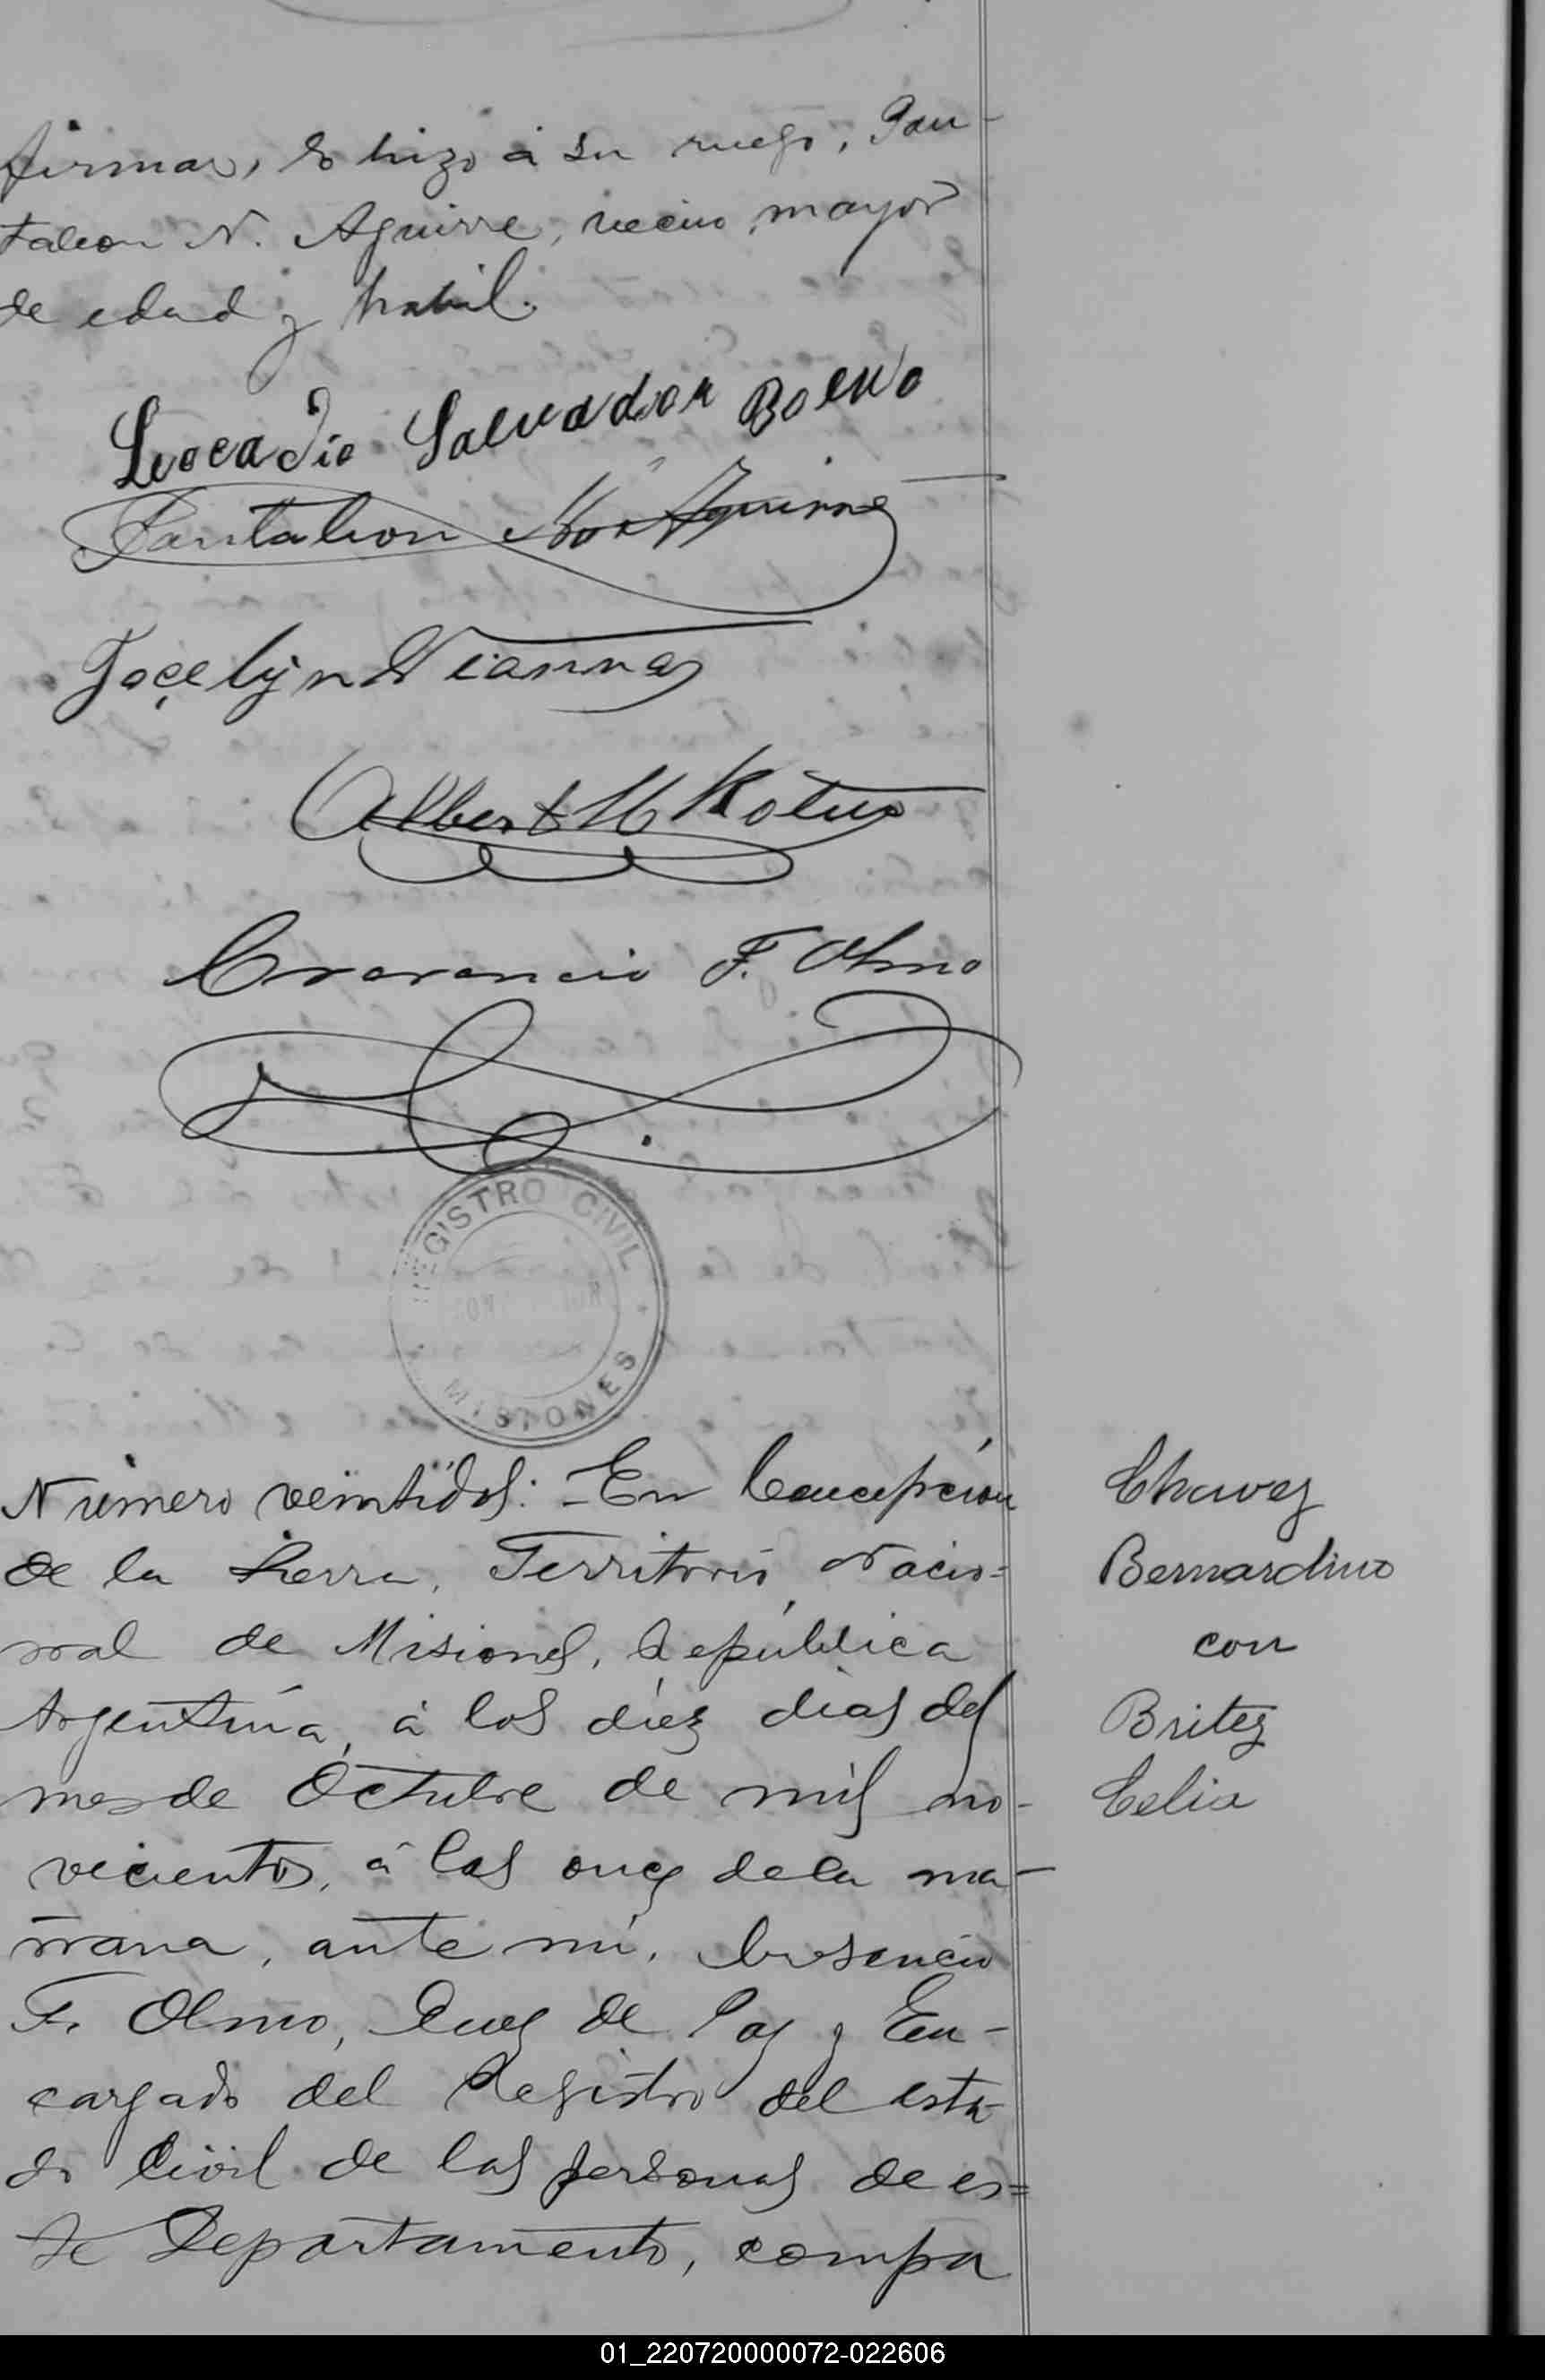 firmar, lo hizo á su ruego, Pan-
taleon N. Aguirre, vecino, mayor
de edad y habil.
Leocadio Salvador Bueno
Pantaleon Aguirre
Jocelyn Vianna
Albert
F. Olmo
REGISTRO CIVIL
MISIONES
Número veintidos: - En Concepción
de la Sierra, Territorio Nacio=
nal de Misiones, República
Argentina, á los diez dias del
mes de Octubre de mil no-
vecientos, á las once de la ma-
ñana, ante mi,
F. Olmo, Juez de Paz y En-
cargado del Registro del esta
do Civil de las personas de es=
te Departamento, compa
Chavez
Bernardino
con
Britez
Celia
01_220720000072-022606